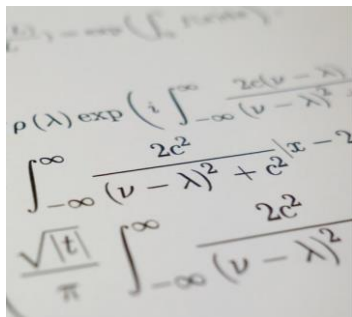 ρ(λ) exp ( i ∫_{-∞}^{∞} 2c(ν − λ) / (ν − λ)²
∫_{-∞}^{∞} 2c² / ((ν − λ)² + c²) |x − 2
√|t| / π ∫_{-∞}^{∞} 2c² / (ν − λ)²